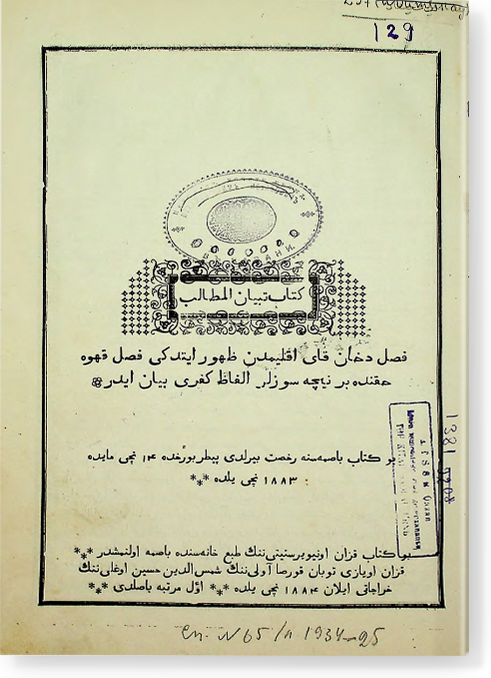 129
كتاب تبيان المطالب
فصل دخان قاى اقليمدن ظهور ايتدكى فصل قهوه
حقنده بر نيچه سوزلر الفاظ كفرى بيان ايدر
بو كتاب باصمه‌سنه رخصت بيرلدى پيطربورغده ۱۴ نچى مايده
۱۸۸۳ نچى يلده
بو كتاب قزان اونيويرسيتيتى‌ننك طبع خانه‌سنده باصمه اولنمشدر
قزان اويازى توبان قورصا آولى‌ننك شمس‌الدين حسين اوغلى‌ننك
خراجاتى ايلان ۱۸۸۴ نچى يلده اوّل مرتبه باصلدى
1381
en. N 65 /n 1934-25